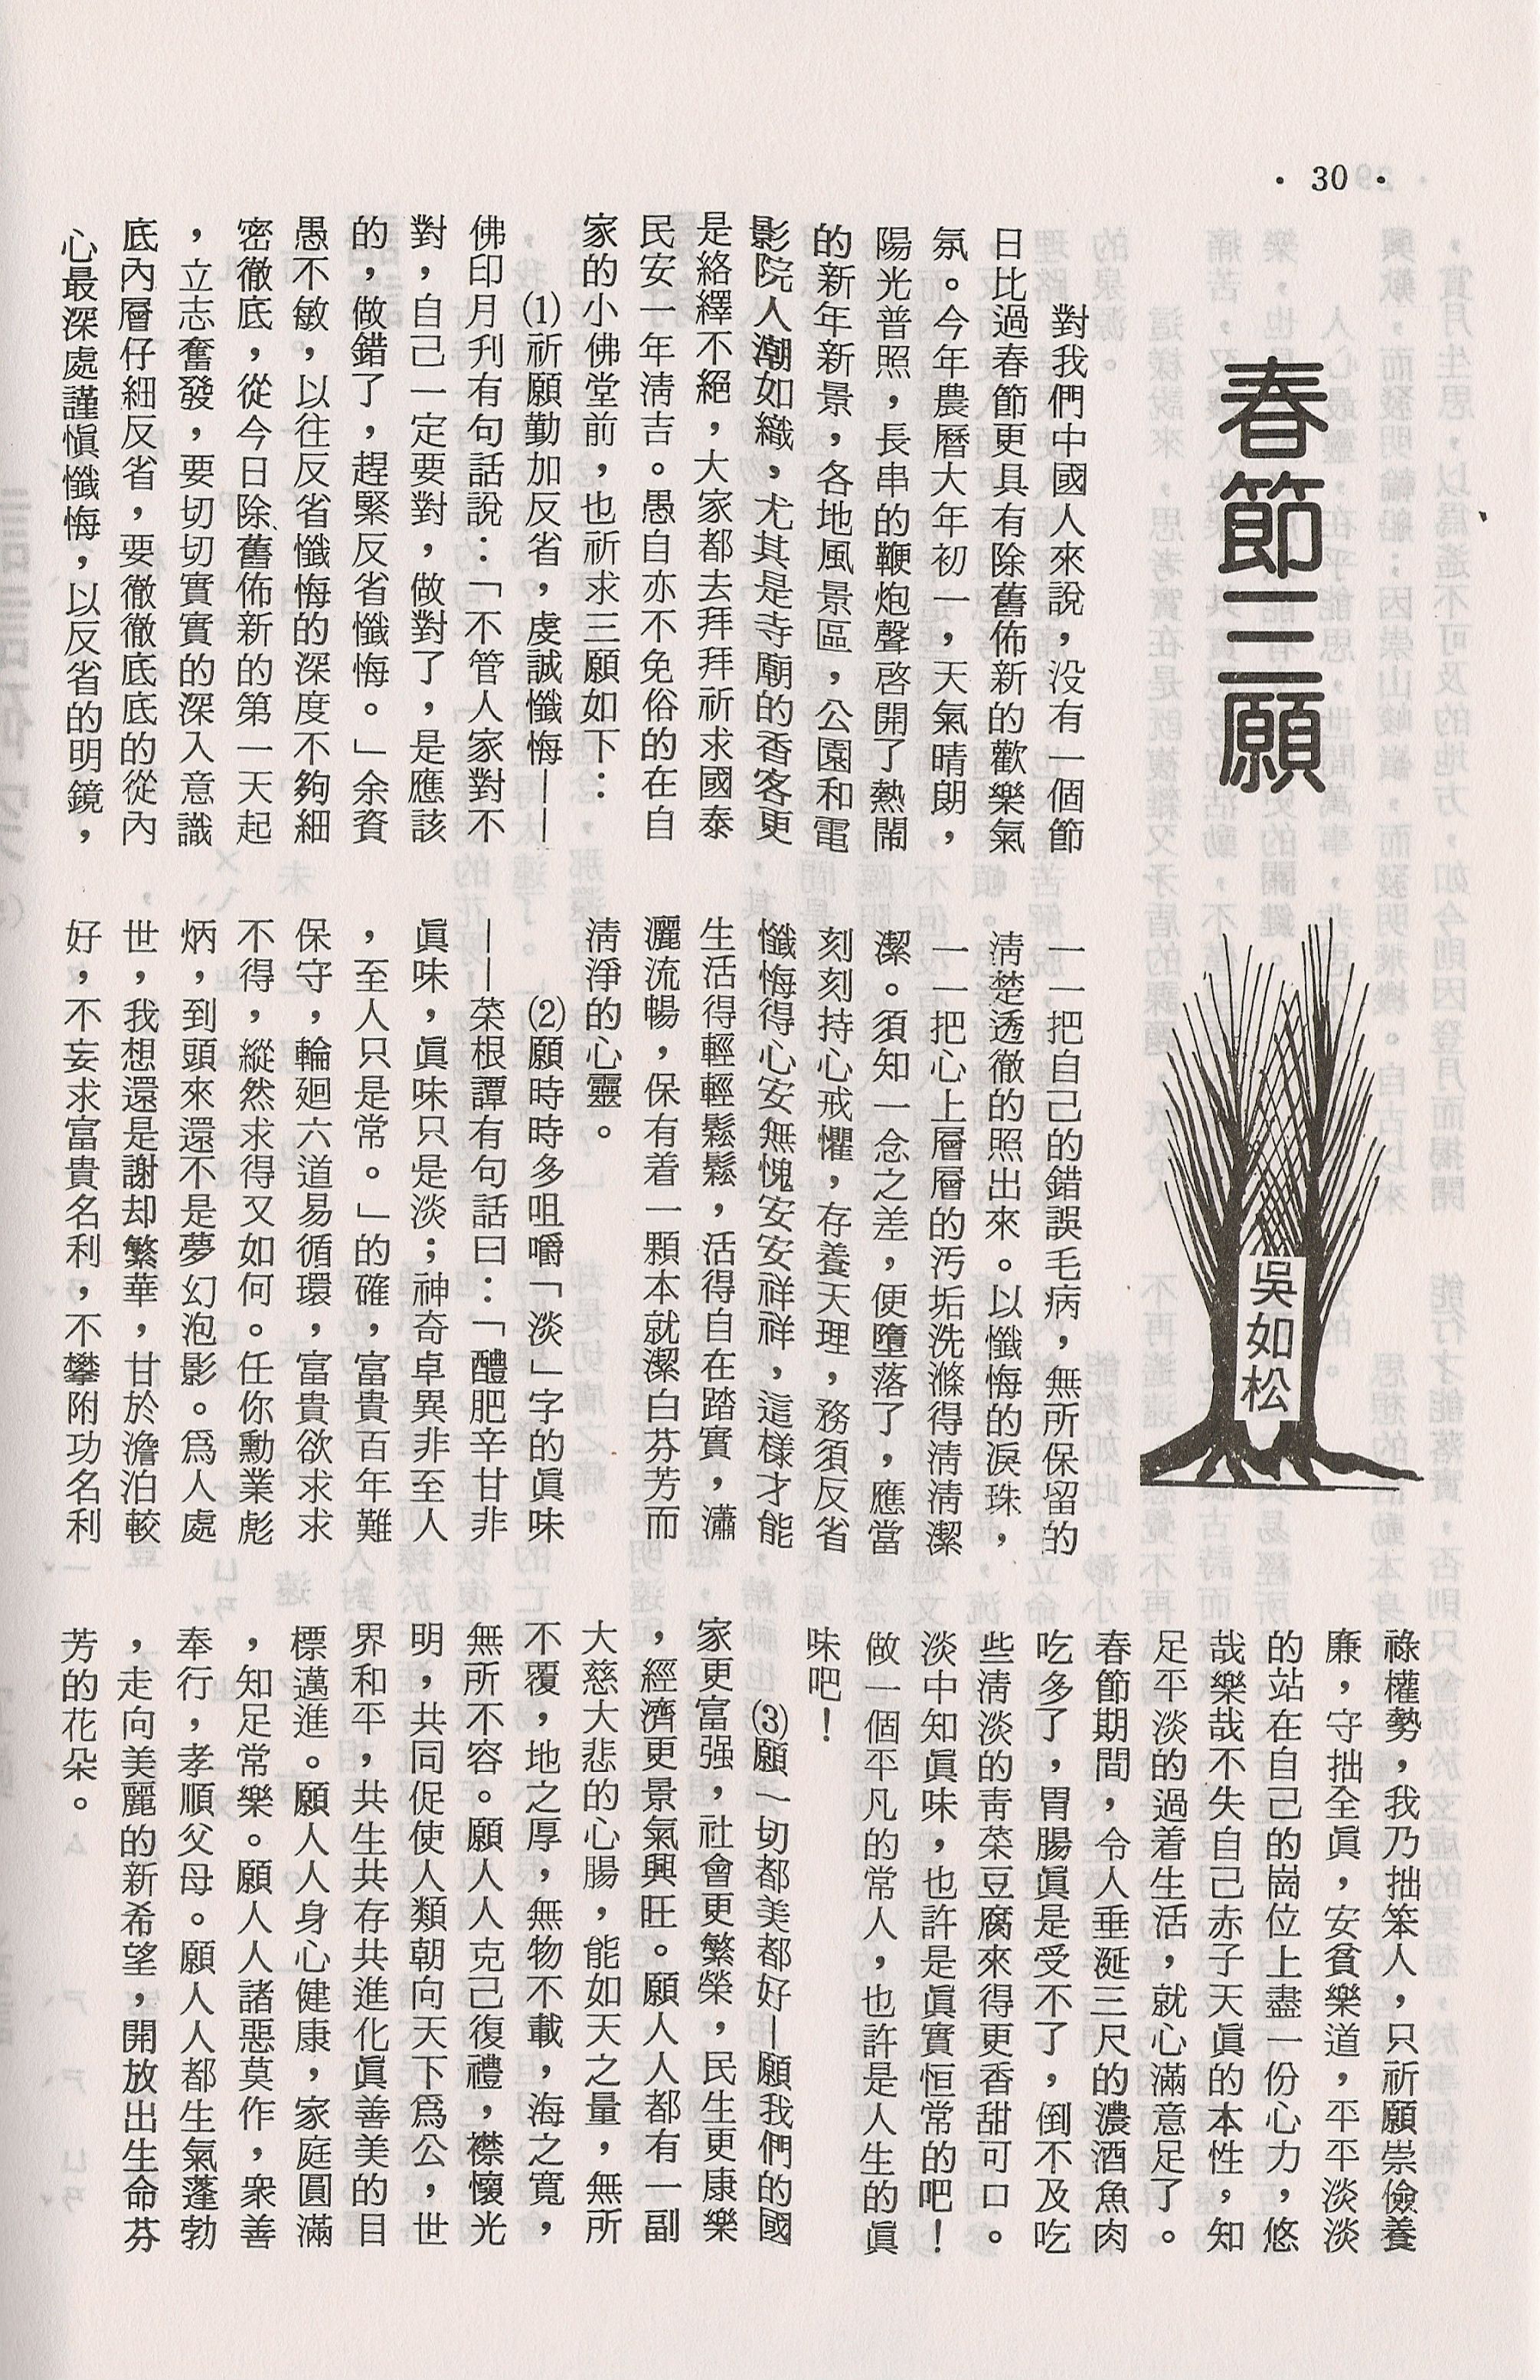 · 30 ·
春節三願
吳如松
對我們中國人來說，没有一個節
日比過春節更具有除舊佈新的歡樂氣
氛。今年農曆大年初一，天氣晴朗，
陽光普照，長串的鞭炮聲啓開了熱鬧
的新年新景，各地風景區，公園和電
影院人潮如織，尤其是寺廟的香客更
是絡繹不絕，大家都去拜拜祈求國泰
民安一年淸吉。愚自亦不免俗的在自
家的小佛堂前，也祈求三願如下：
⑴祈願勤加反省，虔誠懺悔——
佛印月刋有句話說：「不管人家對不
對，自己一定要對，做對了，是應該
的，做錯了，趕緊反省懺悔。」余資
愚不敏，以往反省懺悔的深度不夠細
密徹底，從今日除舊佈新的第一天起
，立志奮發，要切切實實的深入意識
底內層仔細反省，要徹徹底底的從內
心最深處謹愼懺悔，以反省的明鏡，
一一把自己的錯誤毛病，無所保留的
淸楚透徹的照出來。以懺悔的淚珠，
一一把心上層層的汚垢洗滌得淸淸潔
潔。須知一念之差，便墮落了，應當
刻刻持心戒懼，存養天理，務須反省
懺悔得心安無愧安安祥祥，這樣才能
生活得輕輕鬆鬆，活得自在踏實，瀟
灑流暢，保有着一顆本就潔白芬芳而
淸淨的心靈。
⑵願時時多咀嚼「淡」字的眞味
——菜根譚有句話曰：「醴肥辛甘非
眞味，眞味只是淡；神奇卓異非至人
，至人只是常。」的確，富貴百年難
保守，輪廻六道易循環，富貴欲求求
不得，縱然求得又如何。任你勳業彪
炳，到頭來還不是夢幻泡影。爲人處
世，我想還是謝却繁華，甘於澹泊較
好，不妄求富貴名利，不攀附功名利
祿權勢，我乃拙笨人，只祈願崇儉養
廉，守拙全眞，安貧樂道，平平淡淡
的站在自己的崗位上盡一份心力，悠
哉樂哉不失自己赤子天眞的本性，知
足平淡的過着生活，就心滿意足了。
春節期間，令人垂涎三尺的濃酒魚肉
吃多了，胃腸眞是受不了，倒不及吃
些淸淡的靑菜豆腐來得更香甜可口。
淡中知眞味，也許是眞實恒常的吧！
做一個平凡的常人，也許是人生的眞
味吧！
⑶願一切都美都好—願我們的國
家更富强，社會更繁榮，民生更康樂
，經濟更景氣興旺。願人人都有一副
大慈大悲的心腸，能如天之量，無所
不覆，地之厚，無物不載，海之寬，
無所不容。願人人克己復禮，襟懷光
明，共同促使人類朝向天下爲公，世
界和平，共生共存共進化眞善美的目
標邁進。願人人身心健康，家庭圓滿
，知足常樂。願人人諸惡莫作，衆善
奉行，孝順父母。願人人都生氣蓬勃
，走向美麗的新希望，開放出生命芬
芳的花朵。